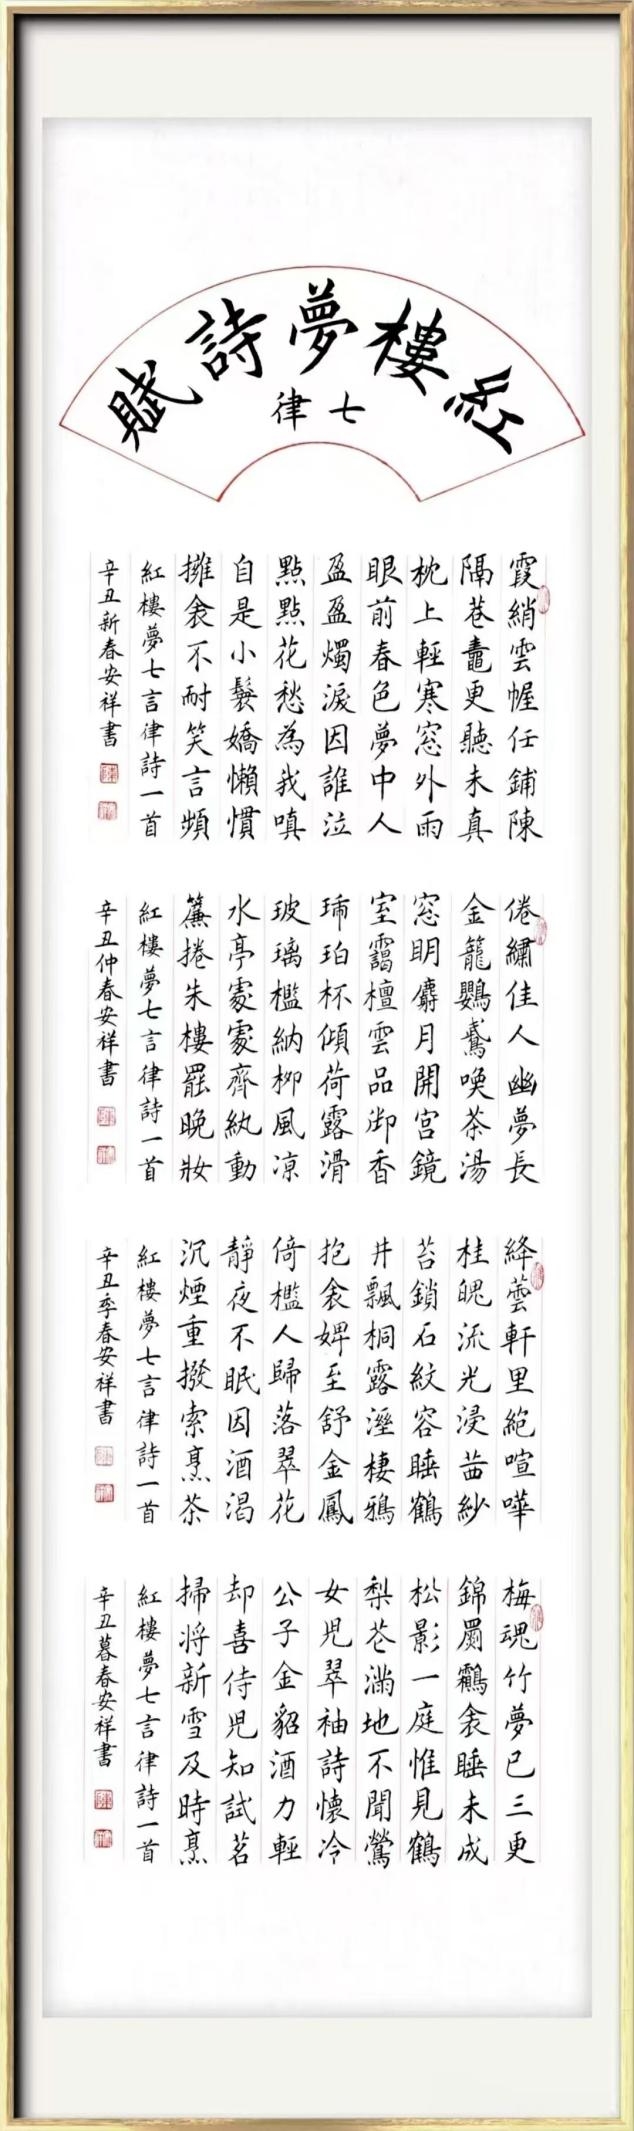 紅樓夢詩賦
七律
霞綃雲幄任鋪陳
隔巷蟇更聽未真
枕上輕寒窓外雨
眼前春色夢中人
盈盈燭淚因誰泣
點點花愁為我嗔
自是小鬟嬌懶慣
擁衾不耐笑言頻
紅樓夢七言律詩一首
辛丑新春安祥書
倦繡佳人幽夢長
金籠鸚鵡喚茶湯
窓明麝月開宮鏡
室靄檀雲品御香
琥珀杯傾荷露滑
玻璃檻納柳風凉
水亭處處齊紈動
簾捲朱樓罷晚妝
紅樓夢七言律詩一首
辛丑仲春安祥書
絳蕓軒里絕喧嘩
桂魄流光浸茜紗
苔鎖石紋容睡鶴
井飄桐露溼棲鴉
抱衾婢至舒金鳳
倚檻人歸落翠花
靜夜不眠因酒渴
沉煙重撥索烹茶
紅樓夢七言律詩一首
辛丑季春安祥書
梅魂竹夢已三更
錦罽鸘衾睡未成
松影一庭惟見鶴
梨花滿地不聞鶯
女兒翠袖詩懷冷
公子金貂酒力輕
却喜侍兒知試茗
掃將新雪及時烹
紅樓夢七言律詩一首
辛丑暮春安祥書